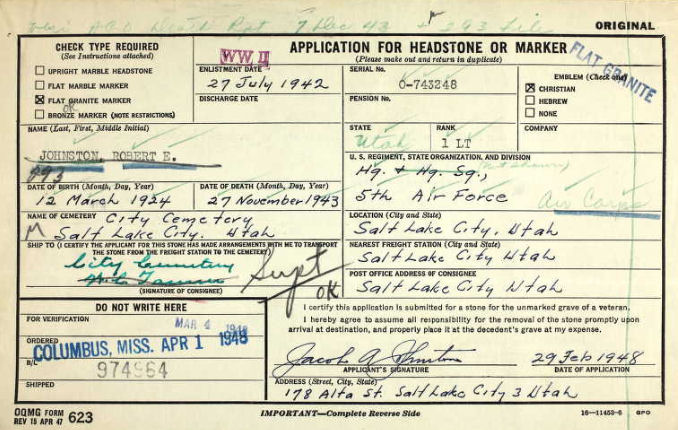 7 Dec 43 + 293 File
ORIGINAL
CHECK TYPE REQUIRED
(See Instructions attached)
UPRIGHT MARBLE HEADSTONE
FLAT MARBLE MARKER
FLAT GRANITE MARKER
OK
BRONZE MARKER (NOTE RESTRICTIONS)
WW II
APPLICATION FOR HEADSTONE OR MARKER
(Please make out and return in duplicate)
FLAT GRANITE
ENLISTMENT DATE
27 July 1942
DISCHARGE DATE
SERIAL No.
O-743248
PENSION No.
EMBLEM (Check one)
CHRISTIAN
HEBREW
NONE
NAME (Last, First, Middle Initial)
JOHNSTON, ROBERT E.
293
STATE
Utah
RANK
1 LT
COMPANY
U. S. REGIMENT, STATE ORGANIZATION, AND DIVISION
Hq. & Hq. Sq.,
5th Air Force
Air Corps
DATE OF BIRTH (Month, Day, Year)
12 March 1924
DATE OF DEATH (Month, Day, Year)
27 November 1943
NAME OF CEMETERY
City Cemetery
Salt Lake City. Utah
LOCATION (City and State)
Salt Lake City, Utah
SHIP TO (I CERTIFY THE APPLICANT FOR THIS STONE HAS MADE ARRANGEMENTS WITH ME TO TRANSPORT
THE STONE FROM THE FREIGHT STATION TO THE CEMETERY)
City Cemetery
Supt
OK
(SIGNATURE OF CONSIGNEE)
NEAREST FREIGHT STATION (City and State)
Salt Lake City Utah
POST OFFICE ADDRESS OF CONSIGNEE
Salt Lake City Utah
DO NOT WRITE HERE
FOR VERIFICATION
MAR 4 1948
ORDERED
COLUMBUS, MISS. APR 1 1948
B/L
974964
SHIPPED
I certify this application is submitted for a stone for the unmarked grave of a veteran.
I hereby agree to assume all responsibility for the removal of the stone promptly upon
arrival at destination, and properly place it at the decedent's grave at my expense.
Jacob A Johnston
29 Feb 1948
APPLICANT'S SIGNATURE
DATE OF APPLICATION
ADDRESS (Street, City, State)
178 Alta St. Salt Lake City 3 Utah
OQMG FORM
REV 15 APR 47
623
IMPORTANT—Complete Reverse Side
16—11453-6 GPO